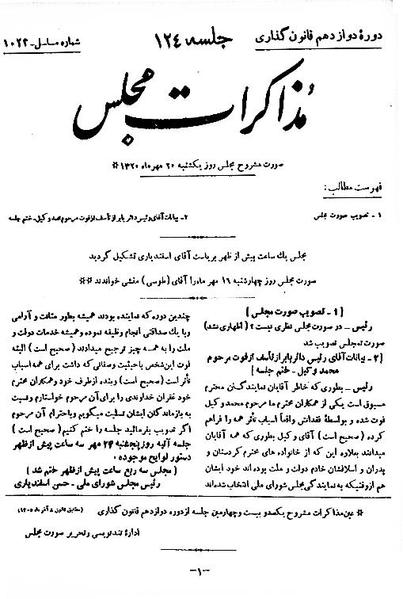 دورهٔ دوازدهم قانون گذاری
جلسه ۱۲۴
شماره مسلسل - ۱۰۲۲
مذاکرات مجلس
صورت مشروح مجلس روز یکشنبه ۲۰ مهر ماه ۱۳۲۰ *
فهرست مطالب :
۱ - تصویب صورت مجلس
۲ - بیانات آقای رئیس دائر بابراز تأسف از فوت مرحوم محمد وکیل - ختم جلسه
مجلس یك ساعت پیش از ظهر بریاست آقای اسفندیاری تشکیل گردید
صورت مجلس روز چهارشنبه ۱۶ مهر ماه را آقای (طوسی) منشی خواندند **
[ ۱ - تصویب صورت مجلس ]
رئیس - در صورت مجلس نظری نیست ؟ (اظهاری نشد)
صورت مجلس تصویب شد
[ ۲ - بیانات آقای رئیس دائر بابراز تأسف از فوت مرحوم
محمد وکیل - ختم جلسه ]
رئیس - بطوری که خاطر آقایان نمایندگان محترم
مسبوق است یکی از همکاران محترم ما مرحوم محمد وکیل
فوت شده و بواسطهٔ فقدانش واقعاً اسباب تأثر همه را فراهم
کرده (صحیح است) آقای وکیل بطوری که همه آقایان
میدانند بعلاوه این که از خانواده های محترم کردستان و
پدران و اسلافشان خادم دولت و ملت بوده اند خود ایشان
هم از وقتیکه به نمایندگی مجلس شورای ملی انتخاب شده‌اند
چندین دوره که نماینده بودند همیشه بطور متانت و آرامی
و با یك صداقتی انجام وظیفه نموده و همیشه خدمات دولت و
ملت را به همه چیز ترجیح میدادند (صحیح است) البته
فوت این شخص با حیثیت وصفائی که داشت برای همه اسباب
تأثر است (صحیح است) بنده از طرف خود و همکاران محترم
خود غفران خداوندی را برای آن مرحوم خواستارم و نسبت
به بازماندگان ایشان تسلیت میگویم و باحترام آن مرحوم
اگر تصویب بفرمائید جلسه را ختم کنیم (صحیح است)
جلسه آتیه روز پنجشنبه ۲۴ مهر سه ساعت پیش از ظهر
دستور لوایح موجوده .
( مجلس سه ربع ساعت پیش از ظهر ختم شد )
رئیس مجلس شورای ملی - حسن اسفندیاری
* عین مذاکرات مشروح یکصد و بیست و چهارمین جلسه از دوره دوازدهم قانون گذاری
ادارهٔ تندنویسی و تحریر صورت مجلس
-۱-